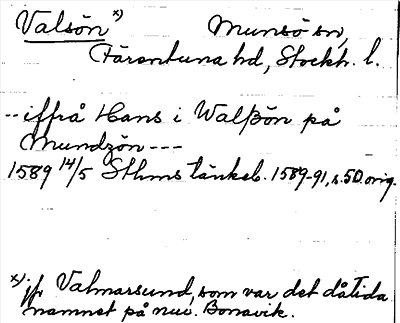 Valsön x) Munsö sn,
Färentuna hd, Stockh. l.
-- iffrå Hans i Walßön på
Mundzön ---
1589 14/5 Sthms tänkeb. 1589-91, s. 50. orig.
x) jfr Valmarsund, som var det dåtida
namnet på nuv. Bonavik.